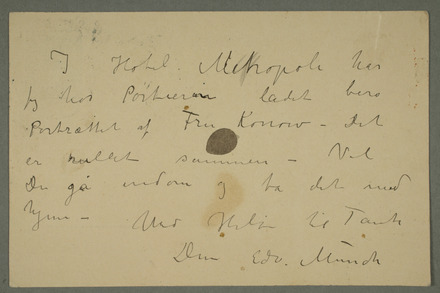 I Hotel Metropole har
jeg hos Portieren ladet bero
Portrættet af Fru Konow – Det
er rullet sammen – Vil
Du gå indom og ta det med
hjem – Med Hilsen til Tante
Din Edv. Munch